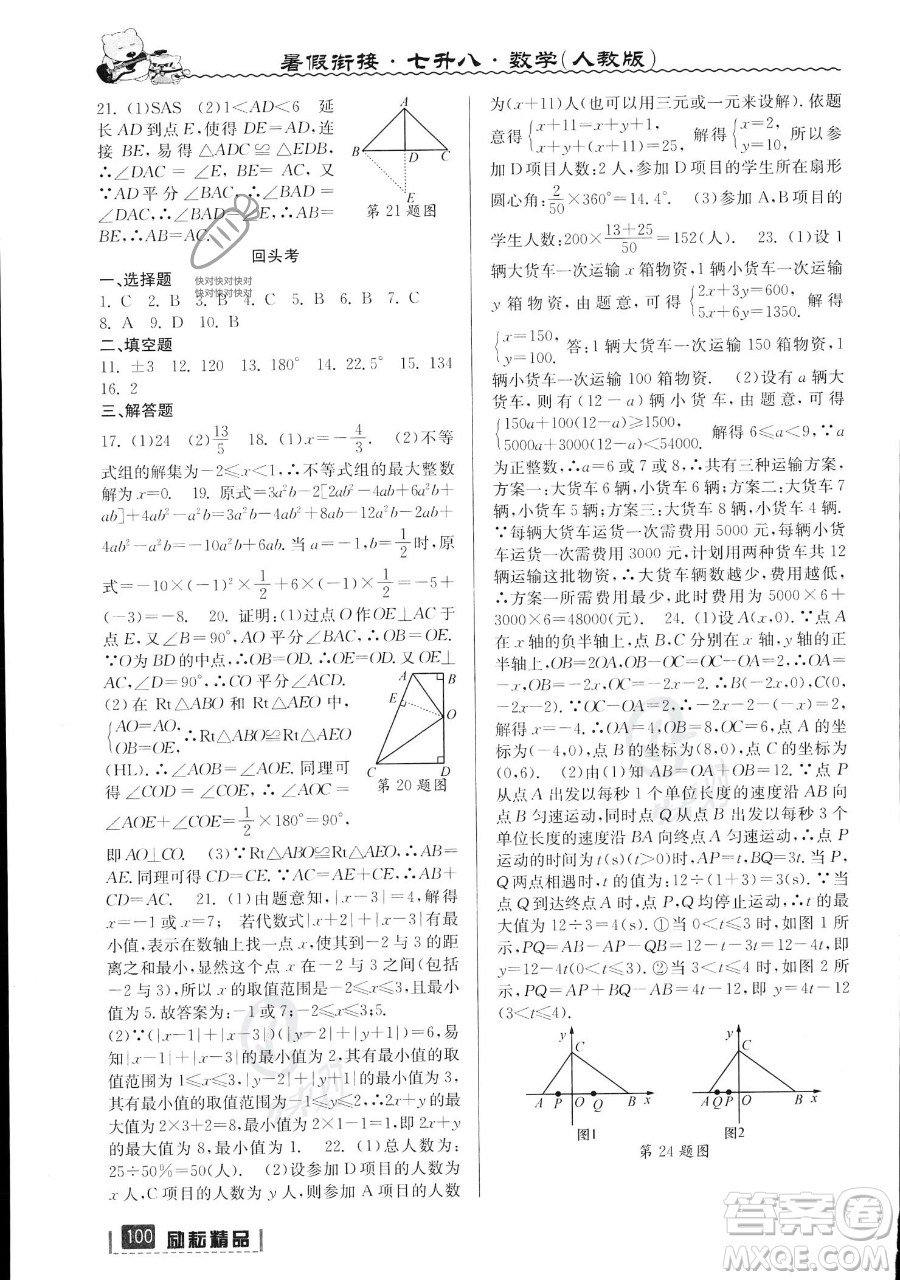 暑假衔接·七升八·数学(人教版)
21. (1)SAS (2)1<AD<6 延
长 AD 到点 E,使得 DE=AD,连
接 BE,易得 △ADC≌△EDB,
∴∠DAC=∠E,BE=AC,又
∵AD 平分∠BAC,∴∠BAD=
∠DAC,∴∠BAD=∠E,∴AB=
BE,∴AB=AC.
A
B
D
C
E
第 21 题图
回头考
一、选择题
1. C 2. B 3. B 4. C 5. C 6. B 7. C
8. A 9. D 10. B
快对快对快对
快对快对快对
二、填空题
11. ±3 12. 120 13. 180° 14. 22.5° 15. 134
16. 2
三、解答题
17. (1)24 (2)13/5 18. (1)x=-4/3. (2)不等
式组的解集为-2≤x<1,∴不等式组的最大整数
解为 x=0. 19. 原式=3a²b-2[2ab²-4ab+6ab+
ab]+4ab²-a²b=3a²b-4ab²+8ab-12ab-2ab+
4ab²-a²b=-10a²b+6ab. 当 a=-1,b=1/2时,原
式=-10×(-1)²×1/2+6×(-1)×1/2=-5+
(-3)=-8. 20. 证明:(1)过点 O 作OE⊥AC 于
点 E,又∵∠B=90°,AO 平分∠BAC,∴OB=OE.
∵O 为 BD 的中点,∴OB=OD,∴OE=OD. 又
∵∠D=90°,∴CO 平分∠ACD.
(2) 在 Rt△ABO 和 Rt△AEO 中,
{AO=AO,
OB=OE, ∴Rt△ABO≌Rt△AEO
(HL). ∴∠AOB=∠AOE. 同理可
得 ∠COD = ∠COE, ∴∠AOC =
∠AOE+∠COE=1/2×180°=90°,
A
B
E
O
C
D
第 20 题图
即 AO⊥CO. (3)∵Rt△ABO≌Rt△AEO,∴AB=
AE. 同理可得 CD=CE. ∵AC=AE+CE,∴AB+
CD=AC. 21. (1)由题意知,|x-3|=4,解得 x=
-1 或 x=7; 若代数式|x+2|+|x-3|有最
小值,表示在数轴上找一点 x,到-2 与 3 的距
离之和最小,显然这个点 x 在-2 与 3 之间(包括
-2 与 3),所以 x 的取值范围是-2≤x≤3,最
小值为 5. 故答案为:-1 或 7;-2≤x≤3;5.
(2)∵(|x-1|+|x-3|)(|y-2|+|y+1|)=6,易
知|x-1|+|x-3|的最小值为 2,其最小值的取
值范围为 1≤x≤3,|y-2|+|y+1|的最小值为
3,其最小值的取值范围为-1≤y≤2,∴代数式
x+2y 的最小值为 2×(-1)+1=-1,代数式x+2y
的最大值为 2×2+3=7,∴代数式 x+2y
的最大值为 7,最小值为-1. 22. (1)总人数为:
25÷50%=50(人). (2)设参加 D 项目的人数为
x 人,C 项目的人数为 y 人,则参加 A 项目的人数
为(x+11)人(也可以用三元或一元来设解). 依题
意得{x+11=x+y+1,
x+y+(x+11)=25, 解得{x=2,
y=10, ∴参加 D
项目人数:2 人,参加 D 项目的学生所在扇形
圆心角:2/50×360°=14.4°. (3)参加 A,B 项目的
学生人数:200×(13+25)/50=152(人). 23. (1)设 1
辆大货车一次运输 x 箱物资,1 辆小货车一次运输
y 箱物资,由题意,可得{2x+3y=600,
5x+6y=1350. 解得
{x=150,
y=100. 答:1 辆大货车一次运输 150 箱物资,1
辆小货车一次运输 100 箱物资. (2)设有 a 辆大
货车,则有(12-a)辆小货车,由题意,可得
{150a+100(12-a)≥1500,
5000a+3000(12-a)<54000. 解得 6≤a<9,∵a
为正整数,∴a=6 或 7 或 8,∴共有三种运输方案,
方案一:大货车 6 辆,小货车 6 辆,方案二:大货车 7
辆,小货车 5 辆;方案三:大货车 8 辆,小货车 4 辆.
∵每辆大货车运货一次需费用 5000 元,每辆小
货车运货一次需费用 3000 元,计划用两种货车共 12
辆运输这批物资,∴大货车辆数越少,费用越小,
∴方案一所需费用最少,此时的费用为 5000×6+
3000×6=48000(元). 24. (1)设 OA=-x,∵点 A
在 x 轴的负半轴上,点 B,C 分别在 x 轴,y 轴的正
半轴上,OB=2OA,OB-OC=OC-OA=2,
∴-x,OB=-2x,OC=2-x,∴B(-2x,0),C(0,
-2-2x). ∵OC-OA=2,∴-2x-2-(-x)=2,
解得 x=-4. ∴OA=4,OB=8,OC=6. ∴点 A 的
坐标为(-4,0),点 B 的坐标为(8,0),点 C 的坐标为
(0,6). (2)由(1)知,AB=OA+OB=12. ∵点 P
从点 A 出发以每秒 1 个单位长度的速度沿 AB 向
点 B 匀速运动,点 Q 从点 B 出发以每秒 3 个
单位长度的速度沿 BA 向终点 A 匀速运动,∴点 P
运动的时间为 t(s)(t>0)时,AP=t,BQ=3t,当 P,
Q 两点相遇时,t=12÷(1+3)=3(s). ∵当点
Q 到达终点 A 时,点 P,Q 均停止运动,∴t 的最
大值为 12÷3=4(s). ①当 0<t≤3 时,如图 1 所
示,PQ=AB-AP-BQ=12-t-3t=12-4t,即
y=12-4t(0<t≤3). ②当 3<t≤4 时,如图 2 所
示,PQ=AP+BQ-AB=4t-12,即 y=4t-12
(3<t≤4).
y
C
A P O Q B x
图1
y
C
A Q P O B x
图2
第 24 题图
100 励耘精品
答案圈
MXQE.COM